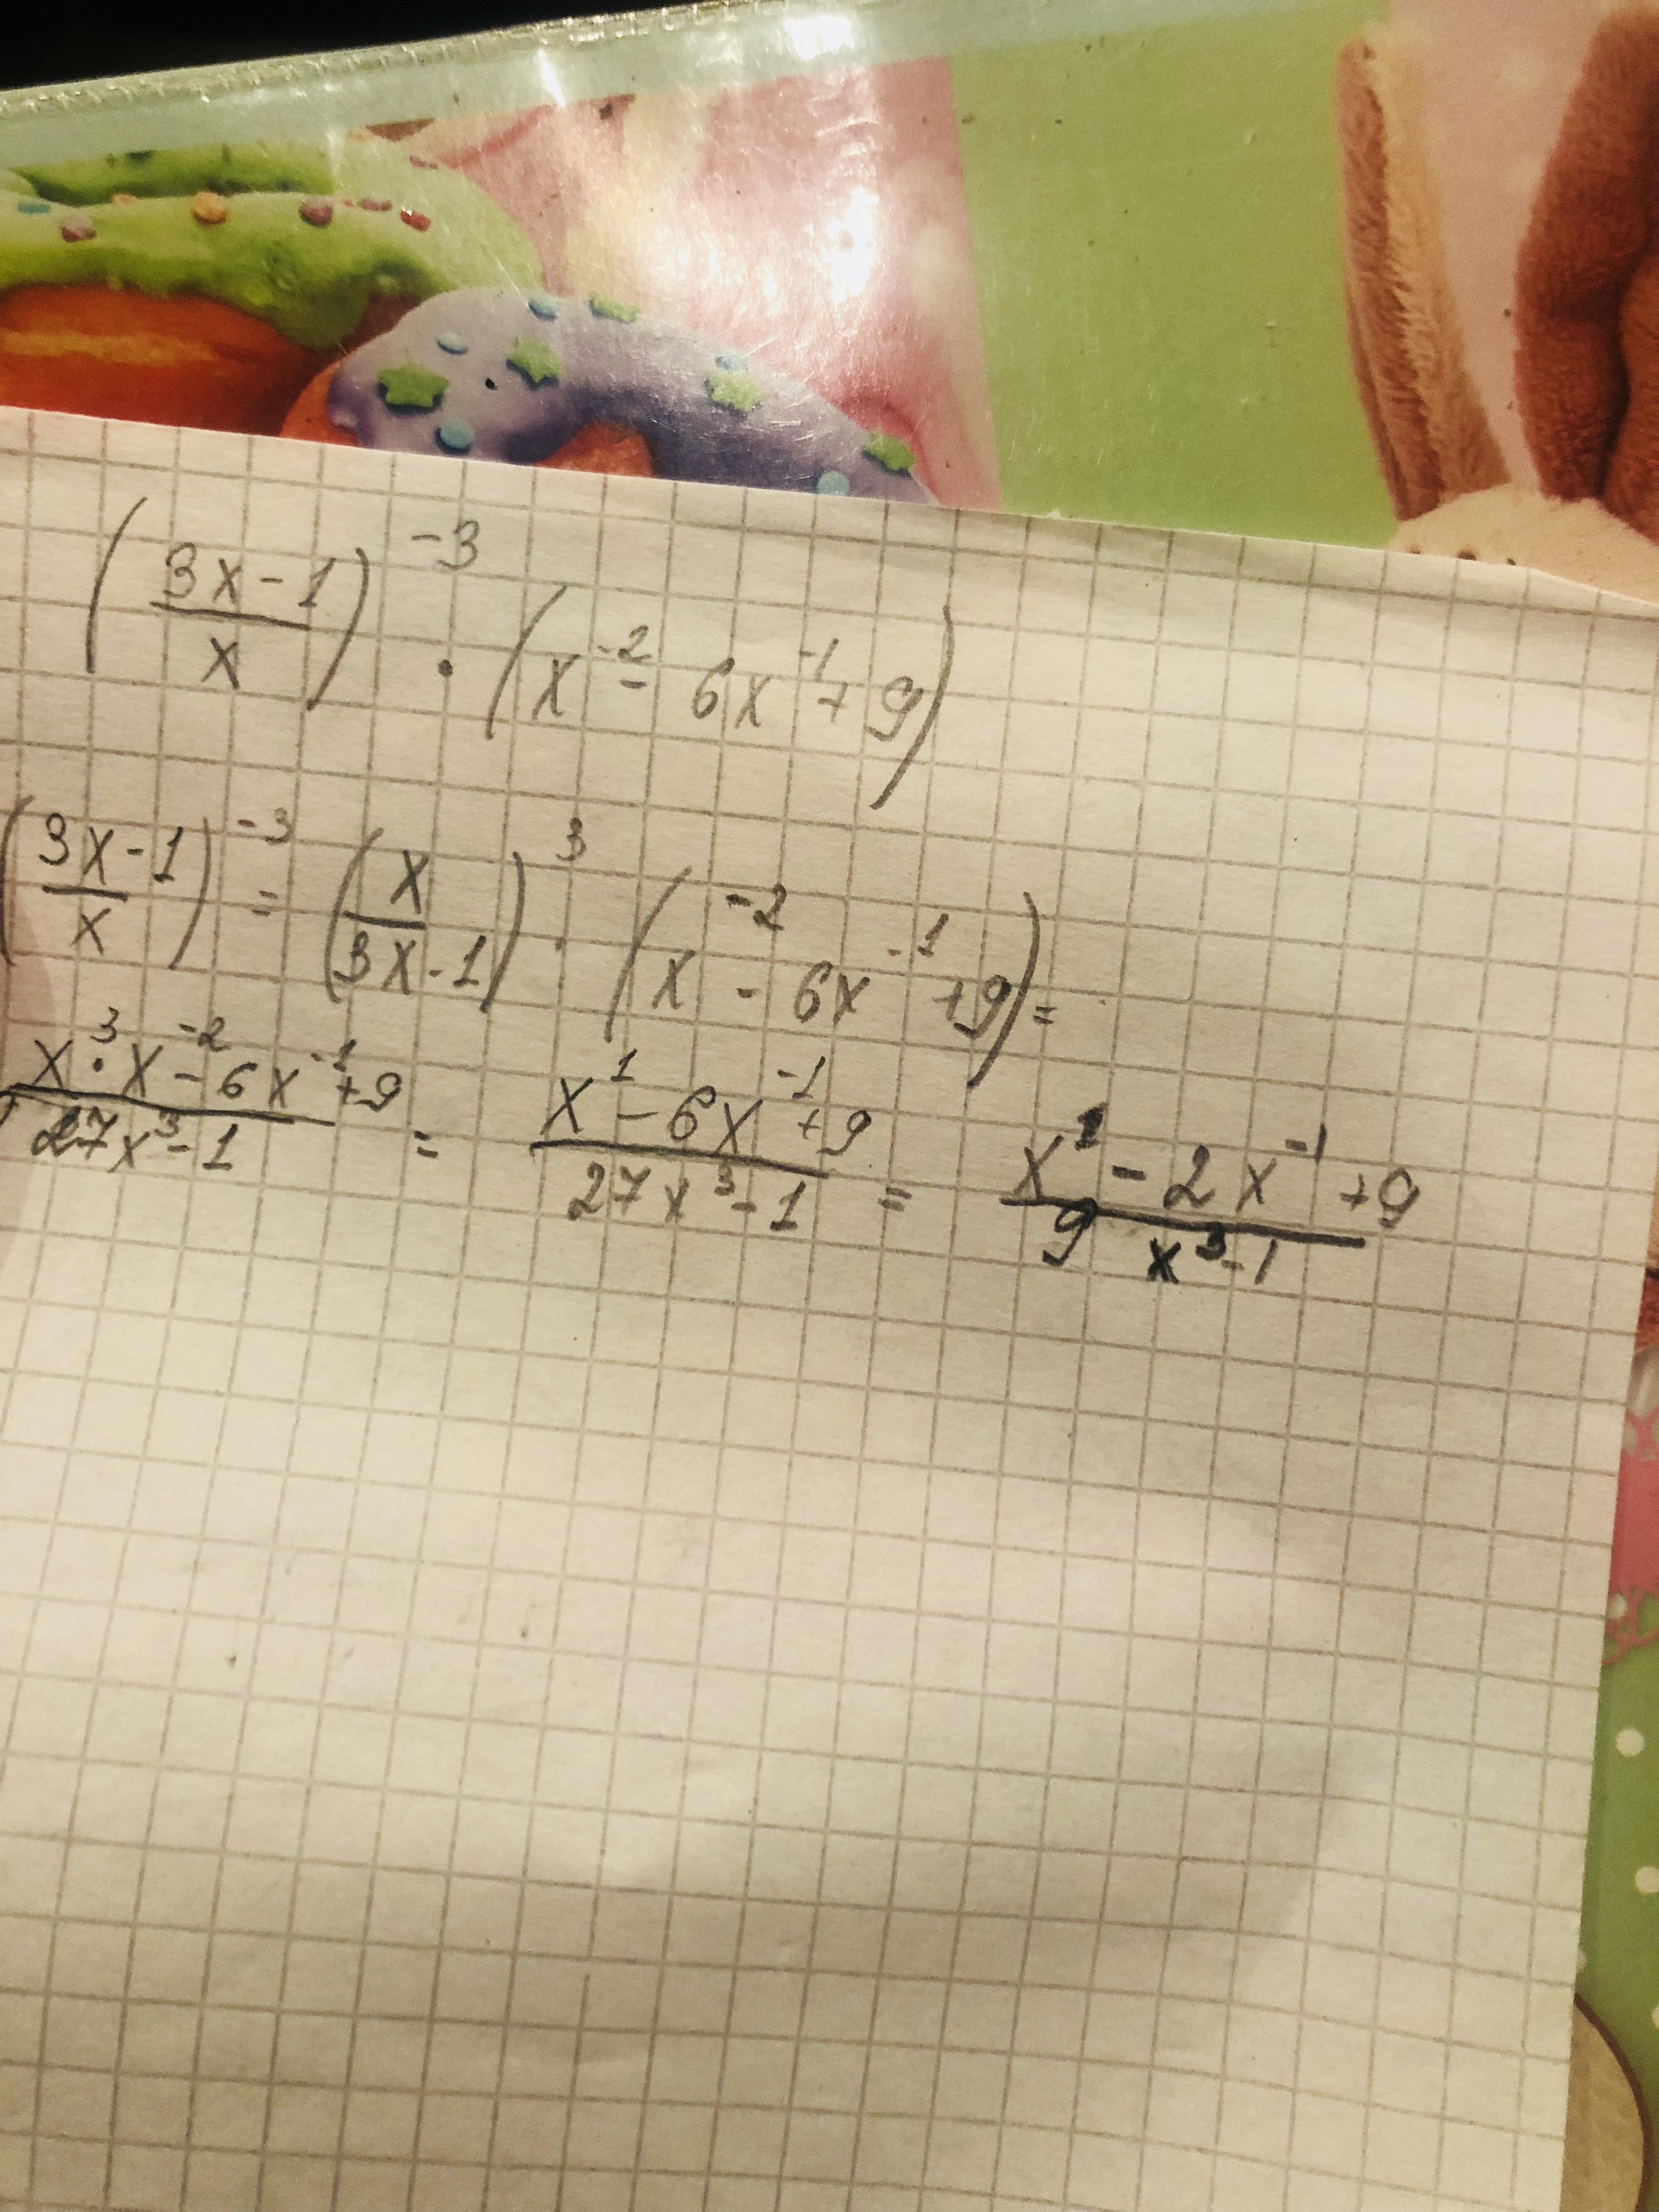 (3x-1/x)^-3 · (x^-2 - 6x^-1 + 9)
(3x-1/x)^-3 = (x/3x-1)^3 · (x^-2 - 6x^-1 + 9) =
x^3·x^-2-6x^-1+9/27x^3-1 = x^1-6x^-1+9/27x^3-1 = x^1-2x^-1+9/9x^3-1